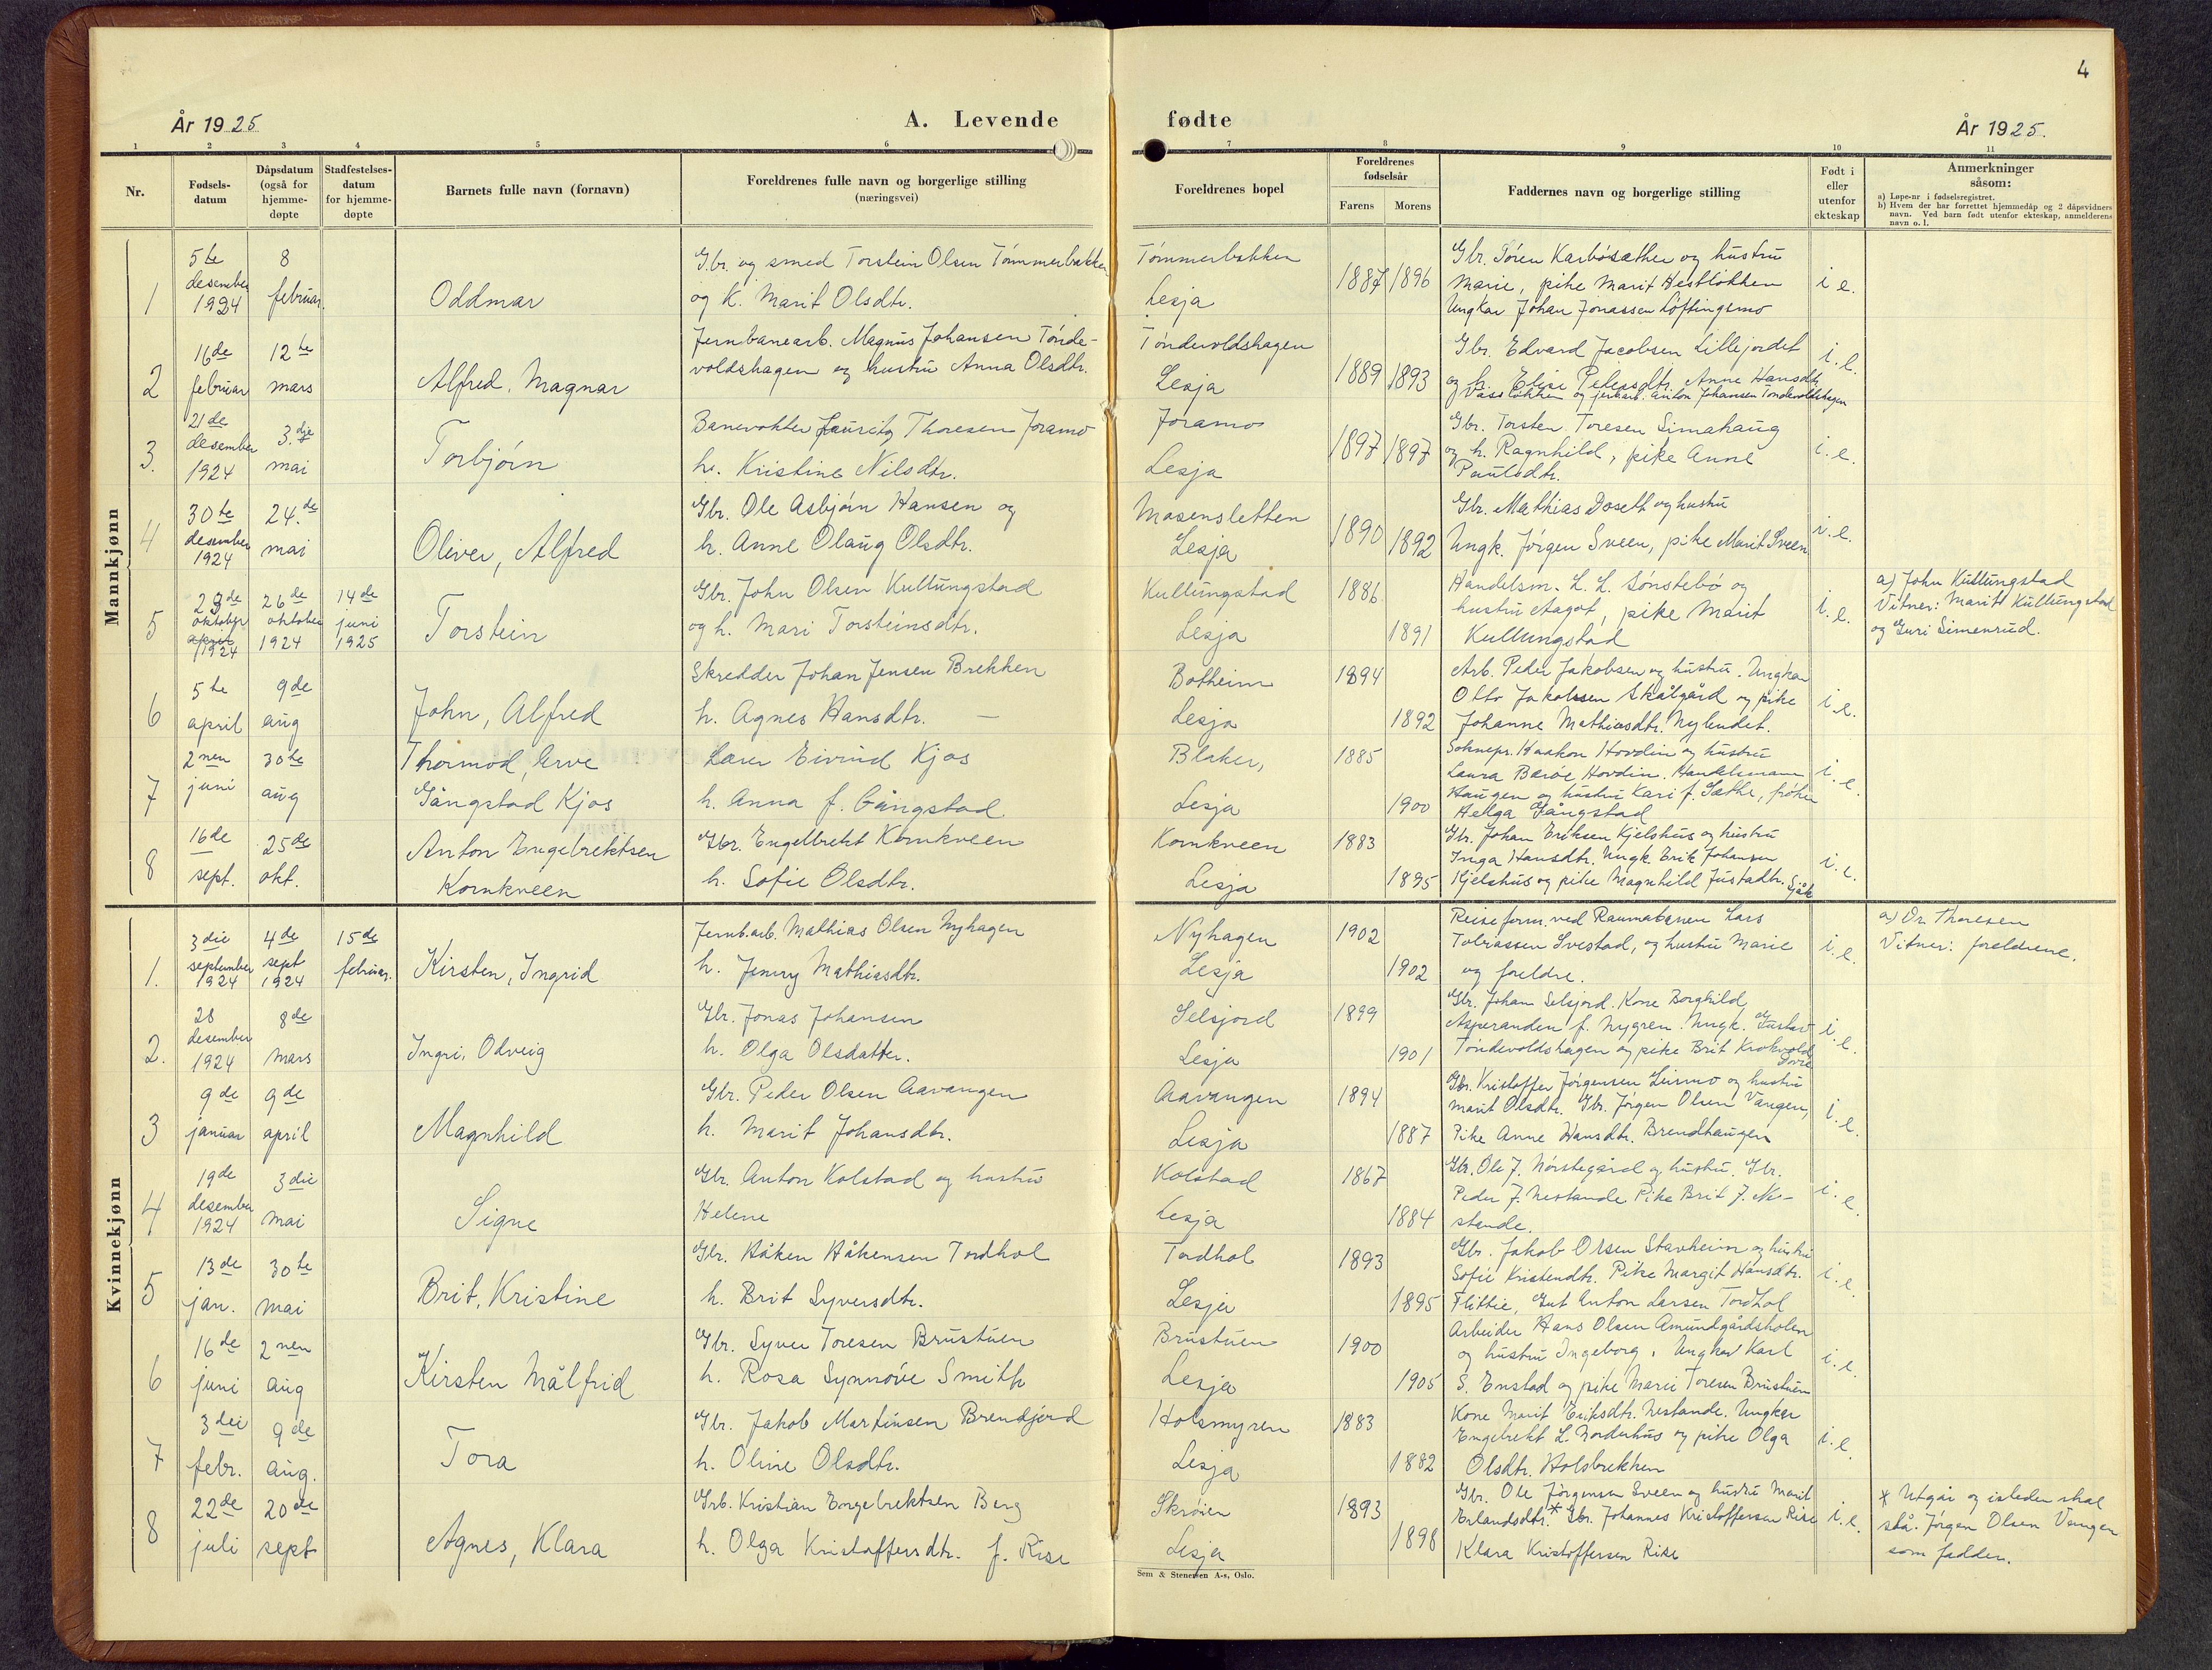 4
År 1925
A. Levende
fødte
År 1925.
1 2 3 4 5 6 7 8 9 10 11
Nr.
Fødsels-
datum
Dåpsdatum
(også for
hjemme-
døpte
Stadfestelses-
datum
for hjemme-
døpte
Barnets fulle navn (fornavn)
Foreldrenes fulle navn og borgerlige stilling
(næringsvei)
Foreldrenes bopel
Foreldrenes
fødselsår
Farens Morens
Faddernes navn og borgerlige stilling
Født i
eller
utenfor
ekteskap
Anmerkninger
såsom:
a) Løpe-nr i fødselsregistret.
b) Hvem der har forrettet hjemmedåp og 2 dåpsvidners
navn. Ved barn født utenfor ekteskap, anmelderens
navn o. l.
Mannkjønn
1
5te
desember
1924
8
februar.
Oddmar
Gbr. og smed Torstein Olsen Tømmerbakken
og K. Marit Olsdtr.
Tømmerbakken
Lesja
1887 1896
Gbr. Søren Karbøsæther og hustru
Marie, pike Marit Hestløkken
Ungkar Johan Jonassen Loftingsmo
i e.
2
16de
februar
12te
mars
Alfred, Magnar
Jernbanearb. Magnus Johansen Tønde-
voldshagen og hustru Anna Olsdtr.
Tøndevoldshagen
Lesja
1889 1893
Gbr. Edvard Jacobsen Lillejordet
og h. Elise Pedersdtr. Anne Hansdtr
Vassløkken og jernarb. Anton Johansen Tøndevoldshagen
i. e.
3.
21de
desember
1924
3.dje
mai
Torbjørn
Banevokter Lauritz Thoresen Joramo
h. Kristine Nilsdtr.
Joramo
Lesja
1897 1897
Gbr. Torsten Toresen Simahaug
og h. Ragnhild, pike Anne
Paulsdtr.
i. e.
4
30te
desember
1924
24.de
mai
Oliver, Alfred
Gbr. Ole Asbjørn Hansen og
h. Anne Olaug Olsdtr.
Mosensletten
Lesja
1890 1892
Gbr. Mathias Dosett og hustru
Ungk. Jørgen Sveen, pike Marit Sveen
i. e.
5
23de
oktober
april
1924
26de
oktober
1924
14de
juni
1925
Torstein
Gbr. John Olsen Kullungstad
og h. Mari Torsteinsdtr.
Kullungstad
Lesja
1886
1891
Handelsm. L. L. Sønstebø og
hustru Aagot, pike Marit
Kullungstad
i. e.
a) John Kullungstad
Vitner: Maritt Kullungstad
og Guri Simenrud.
6
5te
april
9de
aug
John, Alfred
Skredder Johan Jensen Brekken
h. Agnes Hansdtr. —
Botheim
Lesja
1894
1892
Arb. Peder Jakobsen og hustru. Ungkar
Otto Jakobsen Skålgård og pike
Johanne Mathiasdtr. Nylendet.
i. e.
7
2nen
juni
30te
aug
Thormod, Arve
Gångstad Kjos
Lærer Eivind Kjos
h. Anna f. Gångstad
Blaker,
Lesja
1885
1900
Sognepr. Haakon Hovdin og hustru
Laura Barøe Hovdin. Handelsmann
Haugen og hustru Kari f. Sæthe, frøken
Helga Gångstad
i. e.
8
16de
sept.
25de
okt.
Anton Engebrektsen
Kornkveen
Gbr. Engelbrekt Kornkveen
h. Sofie Olsdtr.
Kornkveen
Lesja
1883
1895
Gbr. Johan Eriksen Kjelshus og hustru
Inga Hansdtr. Ungk. Erik Johansen
Kjelshus og pike Magnhild Justadtr. Sjåk
i. e.
Kvinnekjønn
1.
3die
september
1924
4de
sept
1924
15de
februar.
Kirsten, Ingrid
Jernb.arb. Mathias Olsen Nyhagen
h. Jenny Mathiasdtr.
Nyhagen
Lesja
1902
1902
Reiseform. ved Raumabanen Lars
Tobiassen Svestad, og hustru Marie
og foreldre.
i. e.
a) Dr. Thoresen
Vitner: foreldrene.
2.
28
desember
1924
8de
mars
Ingri, Odveig
Gbr. Jonas Johansen
h. Olga Olsdatter.
Selsjord
Lesja
1899
1901
Gbr. Johan Selsjord. Kone Borghild
Asperanden f. Nygren. Ungk. Gustav
Tøndevoldshagen og pike Brit Krokvold
Dovre
i. e.
3
9de
januar
9de
april
Magnhild
Gbr. Peder Olsen Aavangen
h. Marit Johansdtr.
Aavangen
Lesja
1894
1887
Gbr. Kristoffer Jørgensen Leirmo og hustru
Marit Olsdtr. Gbr. Jørgen Olsen Vangen,
Pike Anne Hansdtr. Brendhaugen
i. e.
4
19de
desember
1924
3die
mai
Signe
Gbr. Anton Kolstad og hustru
Helene
Kolstad
Lesja
1867
1884
Gbr. Ole J. Nørstegård og hustru. Gbr.
Peder J. Nestande Pike Brit J. Ne-
stande.
i. e.
5
13de
jan.
30te
mai
Brit, Kristine
Gbr. Håken Håkensen Tordhol
h. Brit Syversdtr.
Tordhol
Lesja
1893
1895
Gbr. Jakob Olsen Stavheim og hustru
Sofie Kristendtr. Pike Margit Hansdtr.
Flittie, Gut Anton Larsen Tordhol
i. e.
6
16de
juni
2nen
aug
Kirsten Målfrid
Gbr. Syver Toresen Brustuen
h. Rosa Synnøve Smith
Brustuen
Lesja
1900
1905
Arbeider Hans Olsen Amundgårdsholen
og hustru Ingeborg, Ungkar Karl
S. Enstad og pike Marie Toresen Brustuen
i. e.
7
3dei
febr.
9de
aug.
Tora
Gbr. Jakob Martinsen Brendjord
h. Oline Olsdtr.
Holsmyren
Lesja
1883
1882
Kone Marit Eriksdtr. Nestande. Ungkar
Engebrekt L. Norderhus og pike Olga
Olsdtr. Holsbrekken
i. e.
8
22de
juli
20de
sept
Agnes, Klara
Grb. Kristian Engebrektsen Berg
h. Olga Kristoffersdtr. f. Rise
Skrøien
Lesja
1893
1898
Gbr. Ole Jörgensen Sveen og hustru Marit
Erlandsdtr.* Gbr. Johannes Kristoffersen Rise
Klara Kristoffersen Rise
i. e.
* Utgår og isteden skal
stå. Jørgen Olsen Vangen
som fadder.
Sem & Stenersen A-s, Oslo.